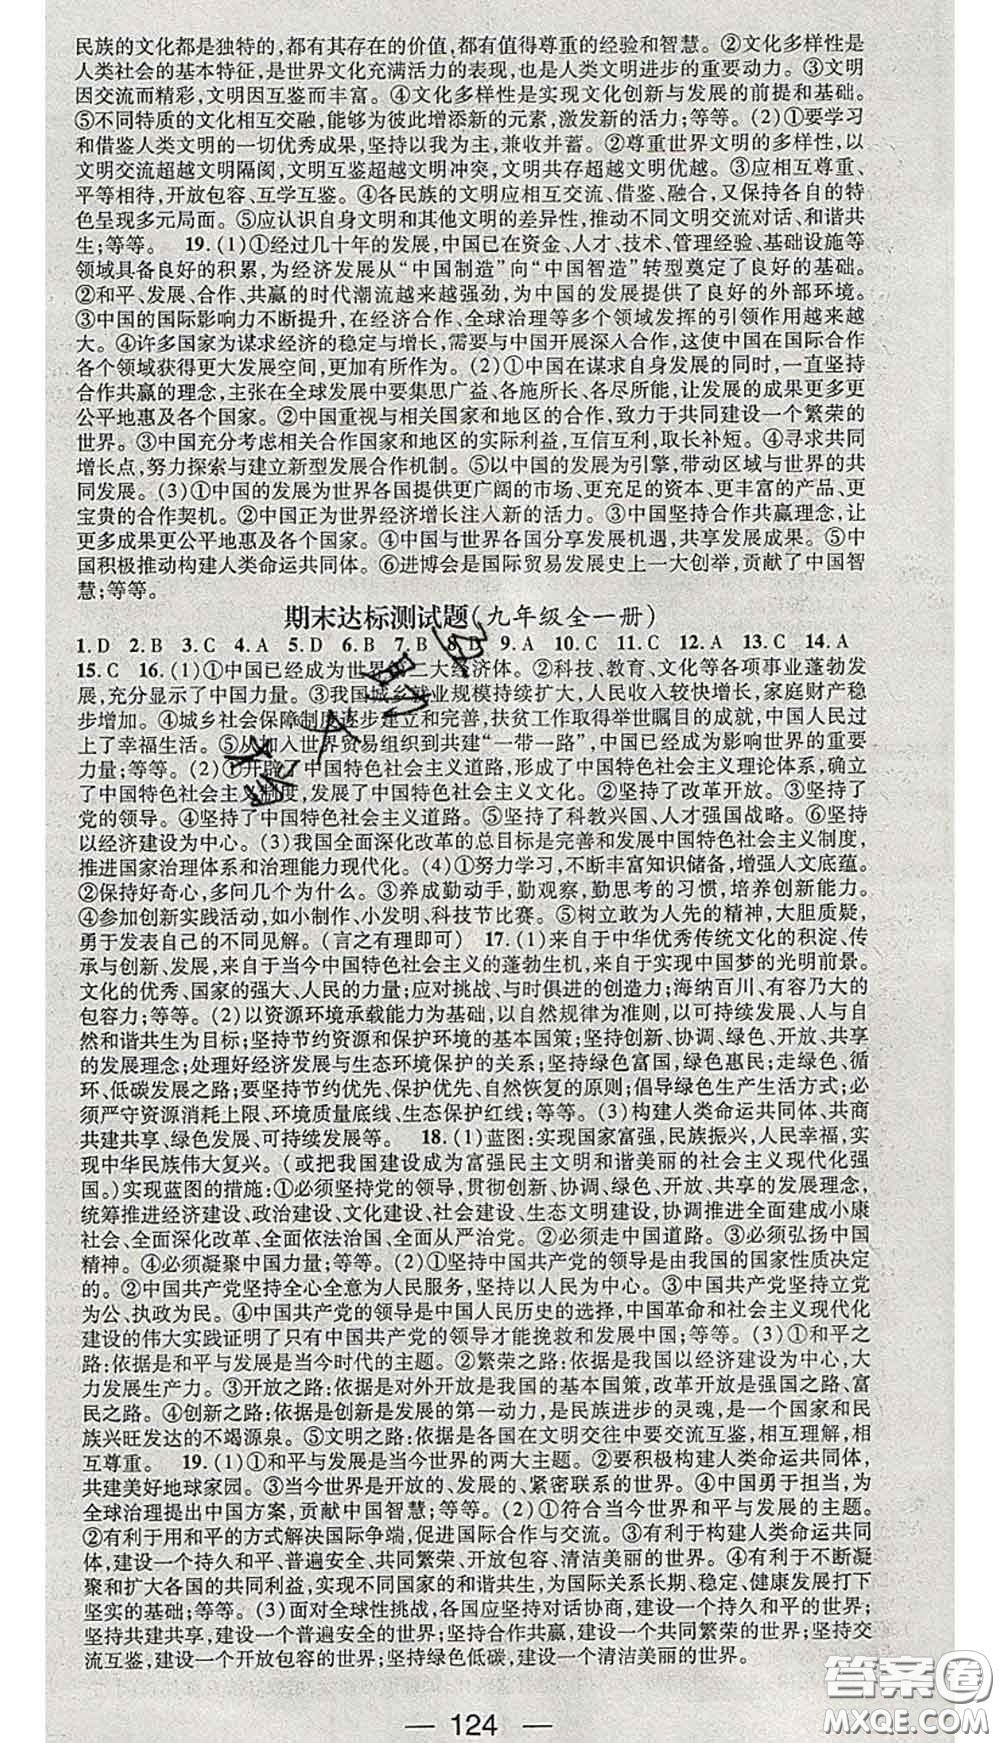 民族的文化都是独特的,都有其存在的价值,都有值得尊重的经验和智慧。②文化多样性是
人类社会的基本特征,是世界文化充满活力的表现,也是人类文明进步的重要动力。③文明
因交流而精彩,文明因互鉴而丰富。④文化多样性是实现文化创新与发展的前提和基础。
⑤不同特质的文化相互交融,能够为彼此增添新的元素,激发新的活力;等等。(2)①要学习
和借鉴人类文明的一切优秀成果,坚持以我为主,兼收并蓄。②尊重世界文明的多样性,以
文明交流超越文明隔阂,文明互鉴超越文明冲突,文明共存超越文明优越。③应相互尊重、
平等相待,开放包容、互学互鉴。④各民族的文明应相互交流、借鉴、融合,又保持各自的特
色呈现多元局面。⑤应认识自身文明和其他文明的差异性,推动不同文明交流对话、和谐共
生;等等。 19.(1)①经过几十年的发展,中国已在资金、人才、技术、管理经验、基础设施等
领域具备良好的积累,为经济发展从“中国制造”向“中国智造”转型奠定了良好的基础。
②和平、发展、合作、共赢的时代潮流越来越强劲,为中国的发展提供了良好的外部环境。
③中国的国际影响力不断提升,在经济合作、全球治理等多个领域发挥的引领作用越来越
大。④许多国家为谋求经济的稳定与增长,需要与中国开展深入合作,这使中国在国际合作
各个领域获得更大发展空间,更加有所作为。(2)①中国在谋求自身发展的同时,一直坚持
合作共赢的理念,主张在全球发展中要集思广益、各施所长、各尽所能,让发展的成果更多更
公平地惠及各个国家。②中国重视与相关国家和地区的合作,致力于共同建设一个繁荣的
世界。③中国充分考虑相关合作国家和地区的实际利益,互信互利,取长补短。④寻求共同
增长点,努力探索与建立新型发展合作机制。⑤以中国的发展为引擎,带动区域与世界的共
同发展。(3)①中国的发展为世界各国提供更广阔的市场、更充足的资本、更丰富的产品、更
宝贵的合作契机。②中国正为世界经济增长注入新的活力。③中国坚持合作共赢理念,让
更多成果更公平地惠及各个国家。④中国与世界各国分享发展机遇,共享发展成果。⑤中
国积极推动构建人类命运共同体。⑥进博会是国际贸易发展史上一大创举,贡献了中国智
慧;等等。
期末达标测试题(九年级全一册)
1. D 2. B 3. C 4. A 5. D 6. B 7. B 8. D 9. A 10. C 11. C 12. A 13. C 14. A
15. C 16.(1)①中国已经成为世界第二大经济体。②科技、教育、文化等各项事业蓬勃发
展,充分显示了中国力量。③我国城乡就业规模持续扩大,居民收入较快增长,家庭财产稳
步增加。④城乡社会保障制度逐步建立和完善,扶贫工作取得举世瞩目的成就,中国人民过
上了幸福生活。⑤从加入世界贸易组织到共建“一带一路”,中国已经成为影响世界的重要
力量;等等。(2)①开辟了中国特色社会主义道路,形成了中国特色社会主义理论体系,确立
了中国特色社会主义制度,发展了中国特色社会主义文化。②坚持了改革开放。③坚持了
党的领导。④坚持了中国特色社会主义道路。⑤坚持了科教兴国、人才强国战略。⑥坚持
以经济建设为中心。(3)我国全面深化改革的总目标是完善和发展中国特色社会主义制度,
推进国家治理体系和治理能力现代化。(4)①努力学习,不断丰富知识储备,增强人文底蕴。
②保持好奇心,多问几个为什么。③养成勤动手,勤观察,勤思考的习惯,培养创新能力。
④参加创新实践活动,如小制作、小发明、科技节比赛。⑤树立敢为人先的精神,大胆质疑,
勇于发表自己的不同见解。(言之有理即可) 17.(1)来自于中华优秀传统文化的积淀、传
承与创新、发展,来自于当今中国特色社会主义的蓬勃生机,来自于实现中国梦的光明前景。
文化的优秀、国家的强大、人民的力量;应对挑战、与时俱进的创造力;海纳百川、有容乃大的
包容力;等等。(2)以资源环境承载能力为基础,以自然规律为准则,以可持续发展、人与自
然和谐共生为目标;坚持节约资源和保护环境的基本国策;坚持创新、协调、绿色、开放、共享
的发展理念;处理好经济发展与生态环境保护的关系;坚持绿色富国,绿色惠民;走绿色、循
环、低碳发展之路;要坚持节约优先、保护优先、自然恢复的原则;倡导绿色生产生活方式;必
须严守资源消耗上限、环境质量底线、生态保护红线;等等。(3)构建人类命运共同体、共商
共建共享、绿色发展、可持续发展等。 18.(1)蓝图:实现国家富强,民族振兴,人民幸福,实
现中华民族伟大复兴。(或把我国建设成为富强民主文明和谐美丽的社会主义现代化强
国。)实现蓝图的措施:①必须坚持党的领导,贯彻创新、协调、绿色、开放、共享的发展理念,
统筹推进经济建设、政治建设、文化建设、社会建设、生态文明建设,协调推进全面建成小康
社会、全面深化改革、全面依法治国、全面从严治党。②必须走中国道路。③必须弘扬中国
精神。④必须凝聚中国力量。(2)①坚持中国共产党的领导是由我国的国家性质决定
的。②中国共产党坚持全心全意为人民服务,坚持以人民为中心。③中国共产党坚持立党
为公、执政为民。④中国共产党的领导是中国人民历史的选择,中国革命和社会主义现代化
建设的伟大实践证明了只有中国共产党的领导才能挽救和发展中国;等等。(3)①和平之
路:依据是和平与发展是当今时代的主题。②繁荣之路:依据是我国以经济建设为中心,大
力发展生产力。③开放之路:依据是对外开放是我国的基本国策,改革开放是强国之路、富
民之路。④创新之路:依据是创新是发展的第一动力,是民族进步的灵魂,是一个国家和民
族兴旺发达的不竭源泉。⑤文明之路:依据是各国在文明交往中要交流互鉴,相互理解,相
互尊重。 19.(1)①和平与发展是当今世界的两大主题。②要积极构建人类命运共同体,
共建美好地球家园。③当今世界是开放的、发展的、紧密联系的世界。④中国勇于担当,为
全球治理提出中国方案,贡献中国智慧;等等。(2)①符合当今世界和平与发展的主题。
②有利于用和平的方式解决国际争端,促进国际合作与交流。③有利于构建人类命运共同
体,建设一个持久和平、普遍安全、共同繁荣、开放包容、清洁美丽的世界。④有利于凝
聚和扩大各国的共同利益,实现不同国家的和谐共生,为国际关系长期、稳定、健康发展打下
坚实的基础;等等。(3)面对全球性挑战,各国应坚持对话协商,建设一个持久和平的世界;
坚持共建共享,建设一个普遍安全的世界;坚持合作共赢,建设一个共同繁荣的世界;坚持交
流互鉴,建设一个开放包容的世界;坚持绿色低碳,建设一个清洁美丽的世界。
— 124 —
答案圈
MXQE.COM